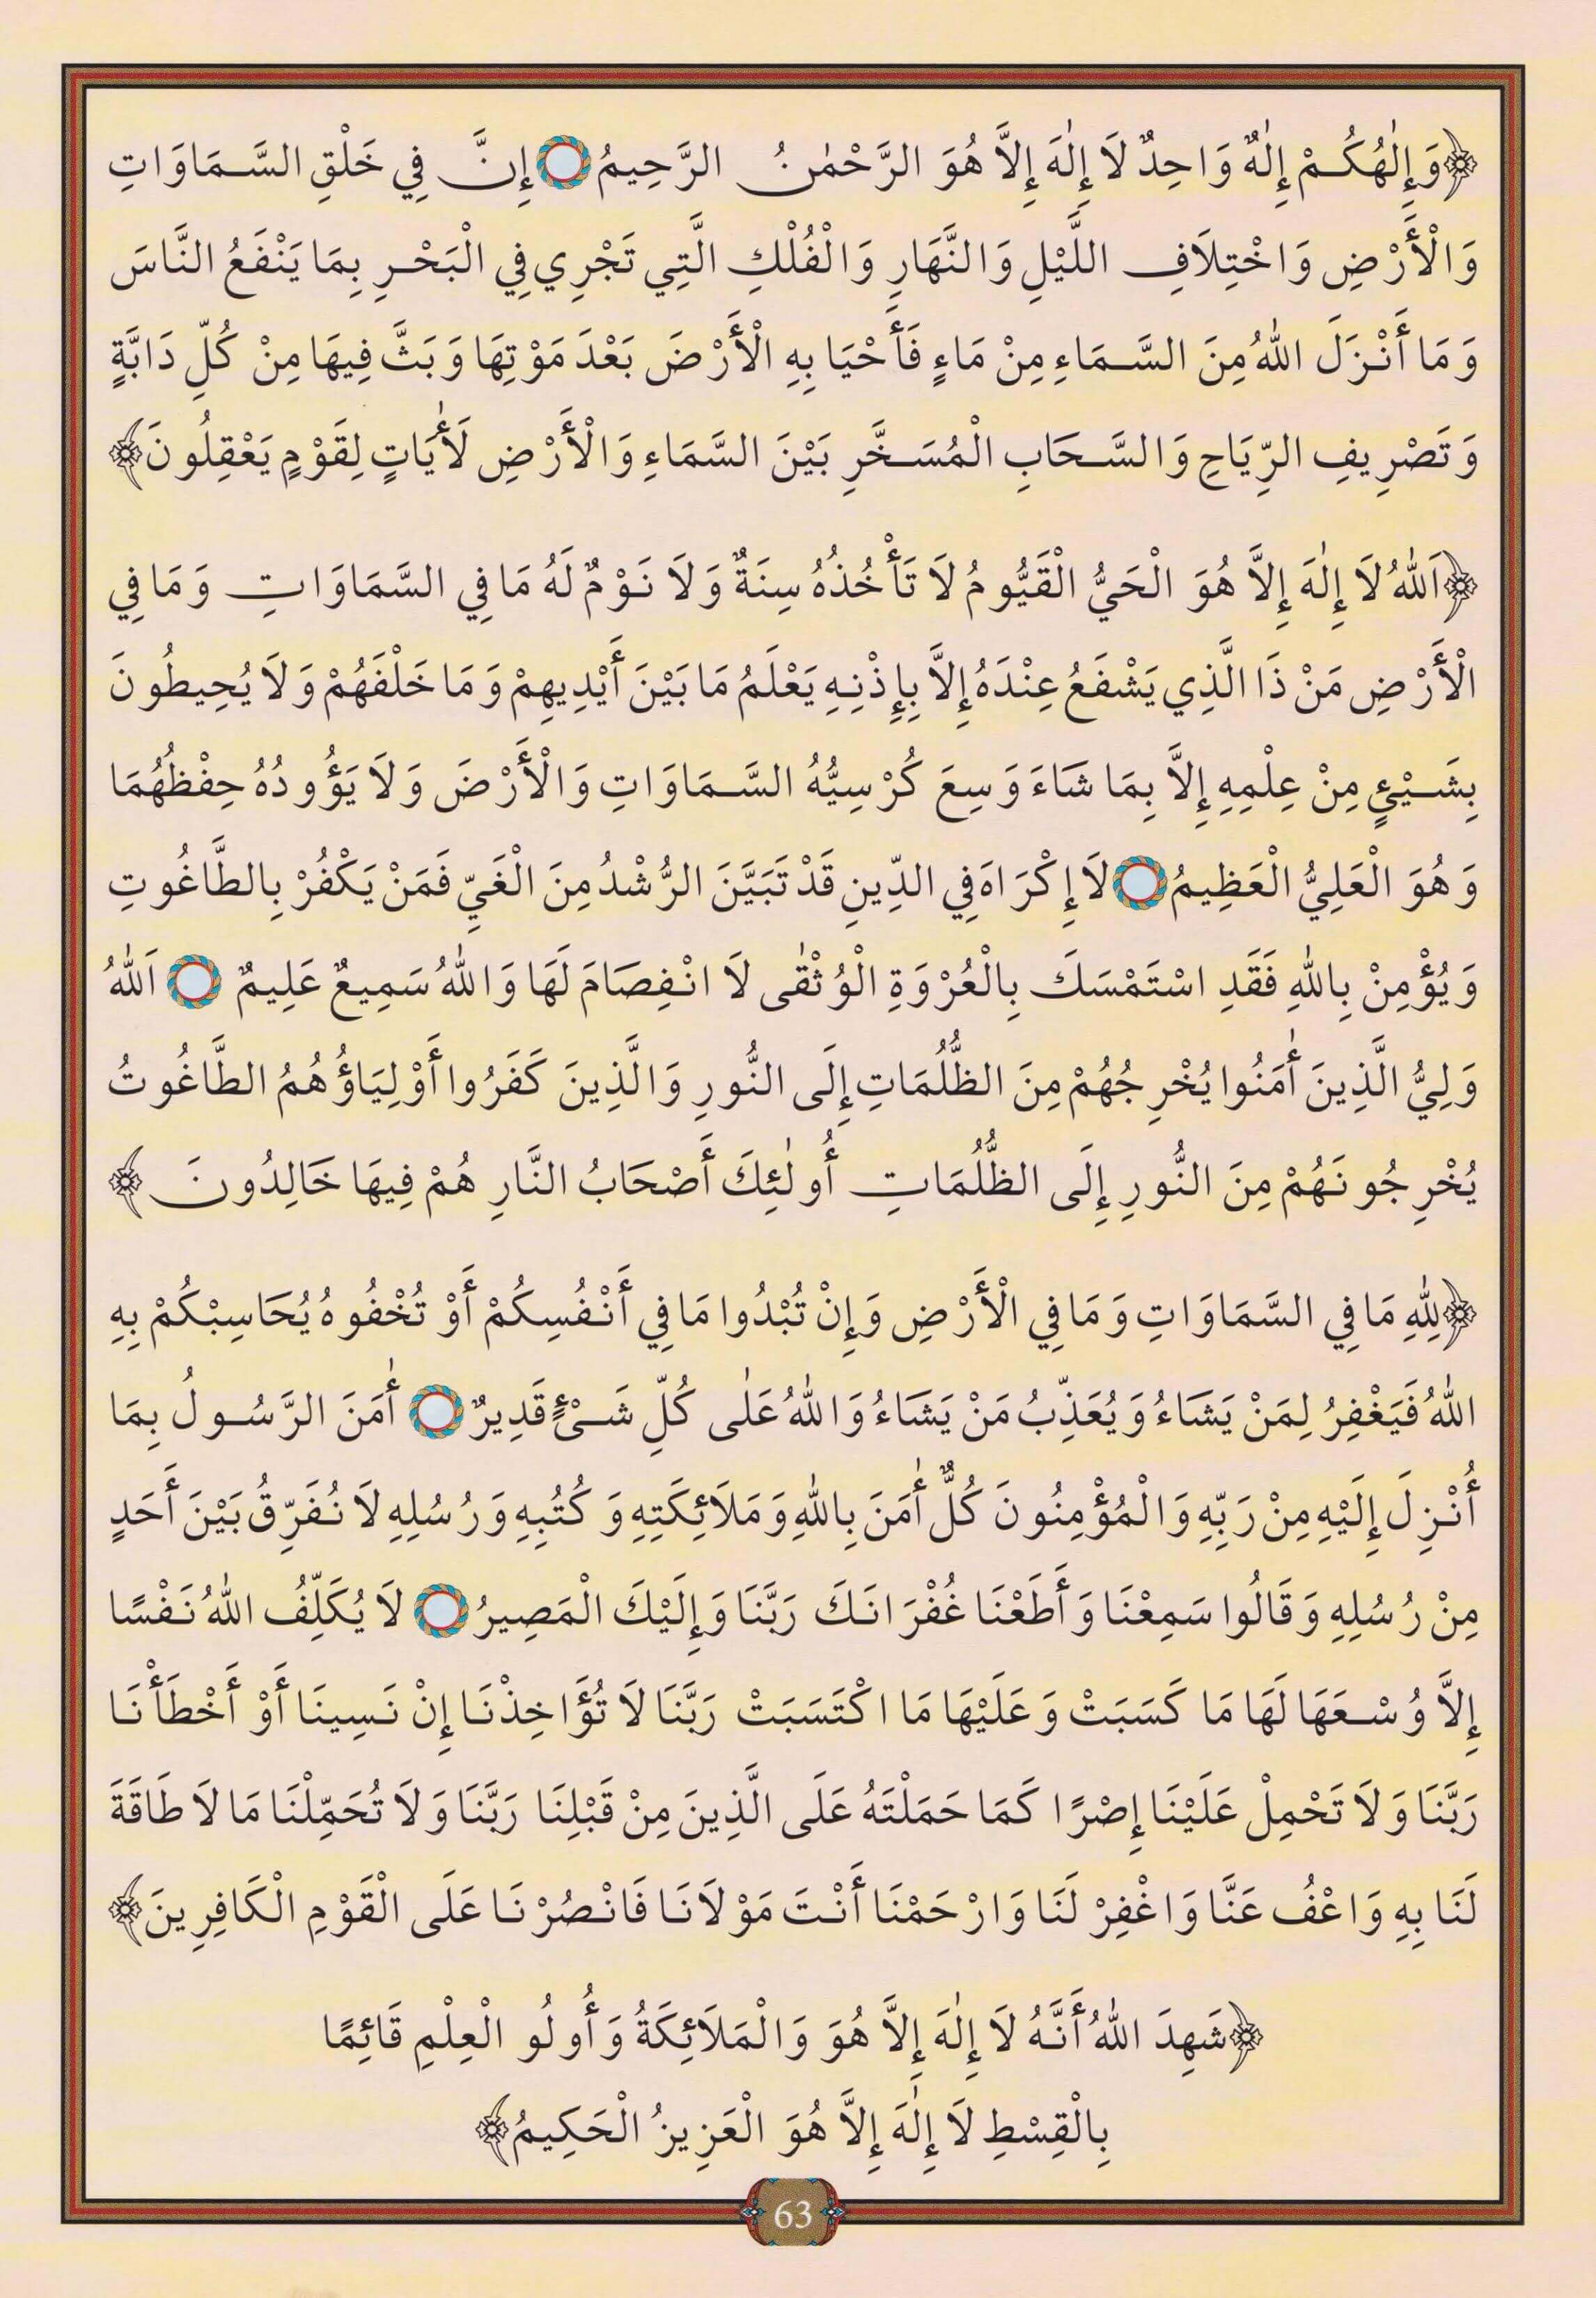 ﴿وَإِلٰهُكُمْ إِلٰهٌ وَاحِدٌ لَا إِلٰهَ إِلَّا هُوَ الرَّحْمٰنُ الرَّحِيمُ ۝ إِنَّ فِي خَلْقِ السَّمَاوَاتِ
وَالْأَرْضِ وَاخْتِلَافِ اللَّيْلِ وَالنَّهَارِ وَالْفُلْكِ الَّتِي تَجْرِي فِي الْبَحْرِ بِمَا يَنْفَعُ النَّاسَ
وَمَا أَنْزَلَ اللّٰهُ مِنَ السَّمَاءِ مِنْ مَاءٍ فَأَحْيَا بِهِ الْأَرْضَ بَعْدَ مَوْتِهَا وَبَثَّ فِيهَا مِنْ كُلِّ دَابَّةٍ
وَتَصْرِيفِ الرِّيَاحِ وَالسَّحَابِ الْمُسَخَّرِ بَيْنَ السَّمَاءِ وَالْأَرْضِ لَأٰيَاتٍ لِقَوْمٍ يَعْقِلُونَ﴾
﴿اَللّٰهُ لَا إِلٰهَ إِلَّا هُوَ الْحَيُّ الْقَيُّومُ لَا تَأْخُذُهُ سِنَةٌ وَلَا نَوْمٌ لَهُ مَا فِي السَّمَاوَاتِ وَمَا فِي
الْأَرْضِ مَنْ ذَا الَّذِي يَشْفَعُ عِنْدَهُ إِلَّا بِإِذْنِهِ يَعْلَمُ مَا بَيْنَ أَيْدِيهِمْ وَمَا خَلْفَهُمْ وَلَا يُحِيطُونَ
بِشَيْئٍ مِنْ عِلْمِهِ إِلَّا بِمَا شَاءَ وَسِعَ كُرْسِيُّهُ السَّمَاوَاتِ وَالْأَرْضَ وَلَا يَؤُودُهُ حِفْظُهُمَا
وَهُوَ الْعَلِيُّ الْعَظِيمُ ۝ لَا إِكْرَاهَ فِي الدِّينِ قَدْ تَبَيَّنَ الرُّشْدُ مِنَ الْغَيِّ فَمَنْ يَكْفُرْ بِالطَّاغُوتِ
وَيُؤْمِنْ بِاللّٰهِ فَقَدِ اسْتَمْسَكَ بِالْعُرْوَةِ الْوُثْقٰى لَا انْفِصَامَ لَهَا وَاللّٰهُ سَمِيعٌ عَلِيمٌ ۝ اَللّٰهُ
وَلِيُّ الَّذِينَ أٰمَنُوا يُخْرِجُهُمْ مِنَ الظُّلُمَاتِ إِلَى النُّورِ وَالَّذِينَ كَفَرُوا أَوْلِيَاؤُهُمُ الطَّاغُوتُ
يُخْرِجُونَهُمْ مِنَ النُّورِ إِلَى الظُّلُمَاتِ أُولٰئِكَ أَصْحَابُ النَّارِ هُمْ فِيهَا خَالِدُونَ﴾
﴿لِلّٰهِ مَا فِي السَّمَاوَاتِ وَمَا فِي الْأَرْضِ وَإِنْ تُبْدُوا مَا فِي أَنْفُسِكُمْ أَوْ تُخْفُوهُ يُحَاسِبْكُمْ بِهِ
اللّٰهُ فَيَغْفِرُ لِمَنْ يَشَاءُ وَيُعَذِّبُ مَنْ يَشَاءُ وَاللّٰهُ عَلٰى كُلِّ شَىْءٍ قَدِيرٌ ۝ أٰمَنَ الرَّسُولُ بِمَا
أُنْزِلَ إِلَيْهِ مِنْ رَبِّهِ وَالْمُؤْمِنُونَ كُلٌّ أٰمَنَ بِاللّٰهِ وَمَلَائِكَتِهِ وَكُتُبِهِ وَرُسُلِهِ لَا نُفَرِّقُ بَيْنَ أَحَدٍ
مِنْ رُسُلِهِ وَقَالُوا سَمِعْنَا وَأَطَعْنَا غُفْرَانَكَ رَبَّنَا وَإِلَيْكَ الْمَصِيرُ ۝ لَا يُكَلِّفُ اللّٰهُ نَفْسًا
إِلَّا وُسْعَهَا لَهَا مَا كَسَبَتْ وَعَلَيْهَا مَا اكْتَسَبَتْ رَبَّنَا لَا تُؤَاخِذْنَا إِنْ نَسِينَا أَوْ أَخْطَأْنَا
رَبَّنَا وَلَا تَحْمِلْ عَلَيْنَا إِصْرًا كَمَا حَمَلْتَهُ عَلَى الَّذِينَ مِنْ قَبْلِنَا رَبَّنَا وَلَا تُحَمِّلْنَا مَا لَا طَاقَةَ
لَنَا بِهِ وَاعْفُ عَنَّا وَاغْفِرْ لَنَا وَارْحَمْنَا أَنْتَ مَوْلَانَا فَانْصُرْنَا عَلَى الْقَوْمِ الْكَافِرِينَ﴾
﴿شَهِدَ اللّٰهُ أَنَّهُ لَا إِلٰهَ إِلَّا هُوَ وَالْمَلَائِكَةُ وَأُولُو الْعِلْمِ قَائِمًا
بِالْقِسْطِ لَا إِلٰهَ إِلَّا هُوَ الْعَزِيزُ الْحَكِيمُ﴾
63